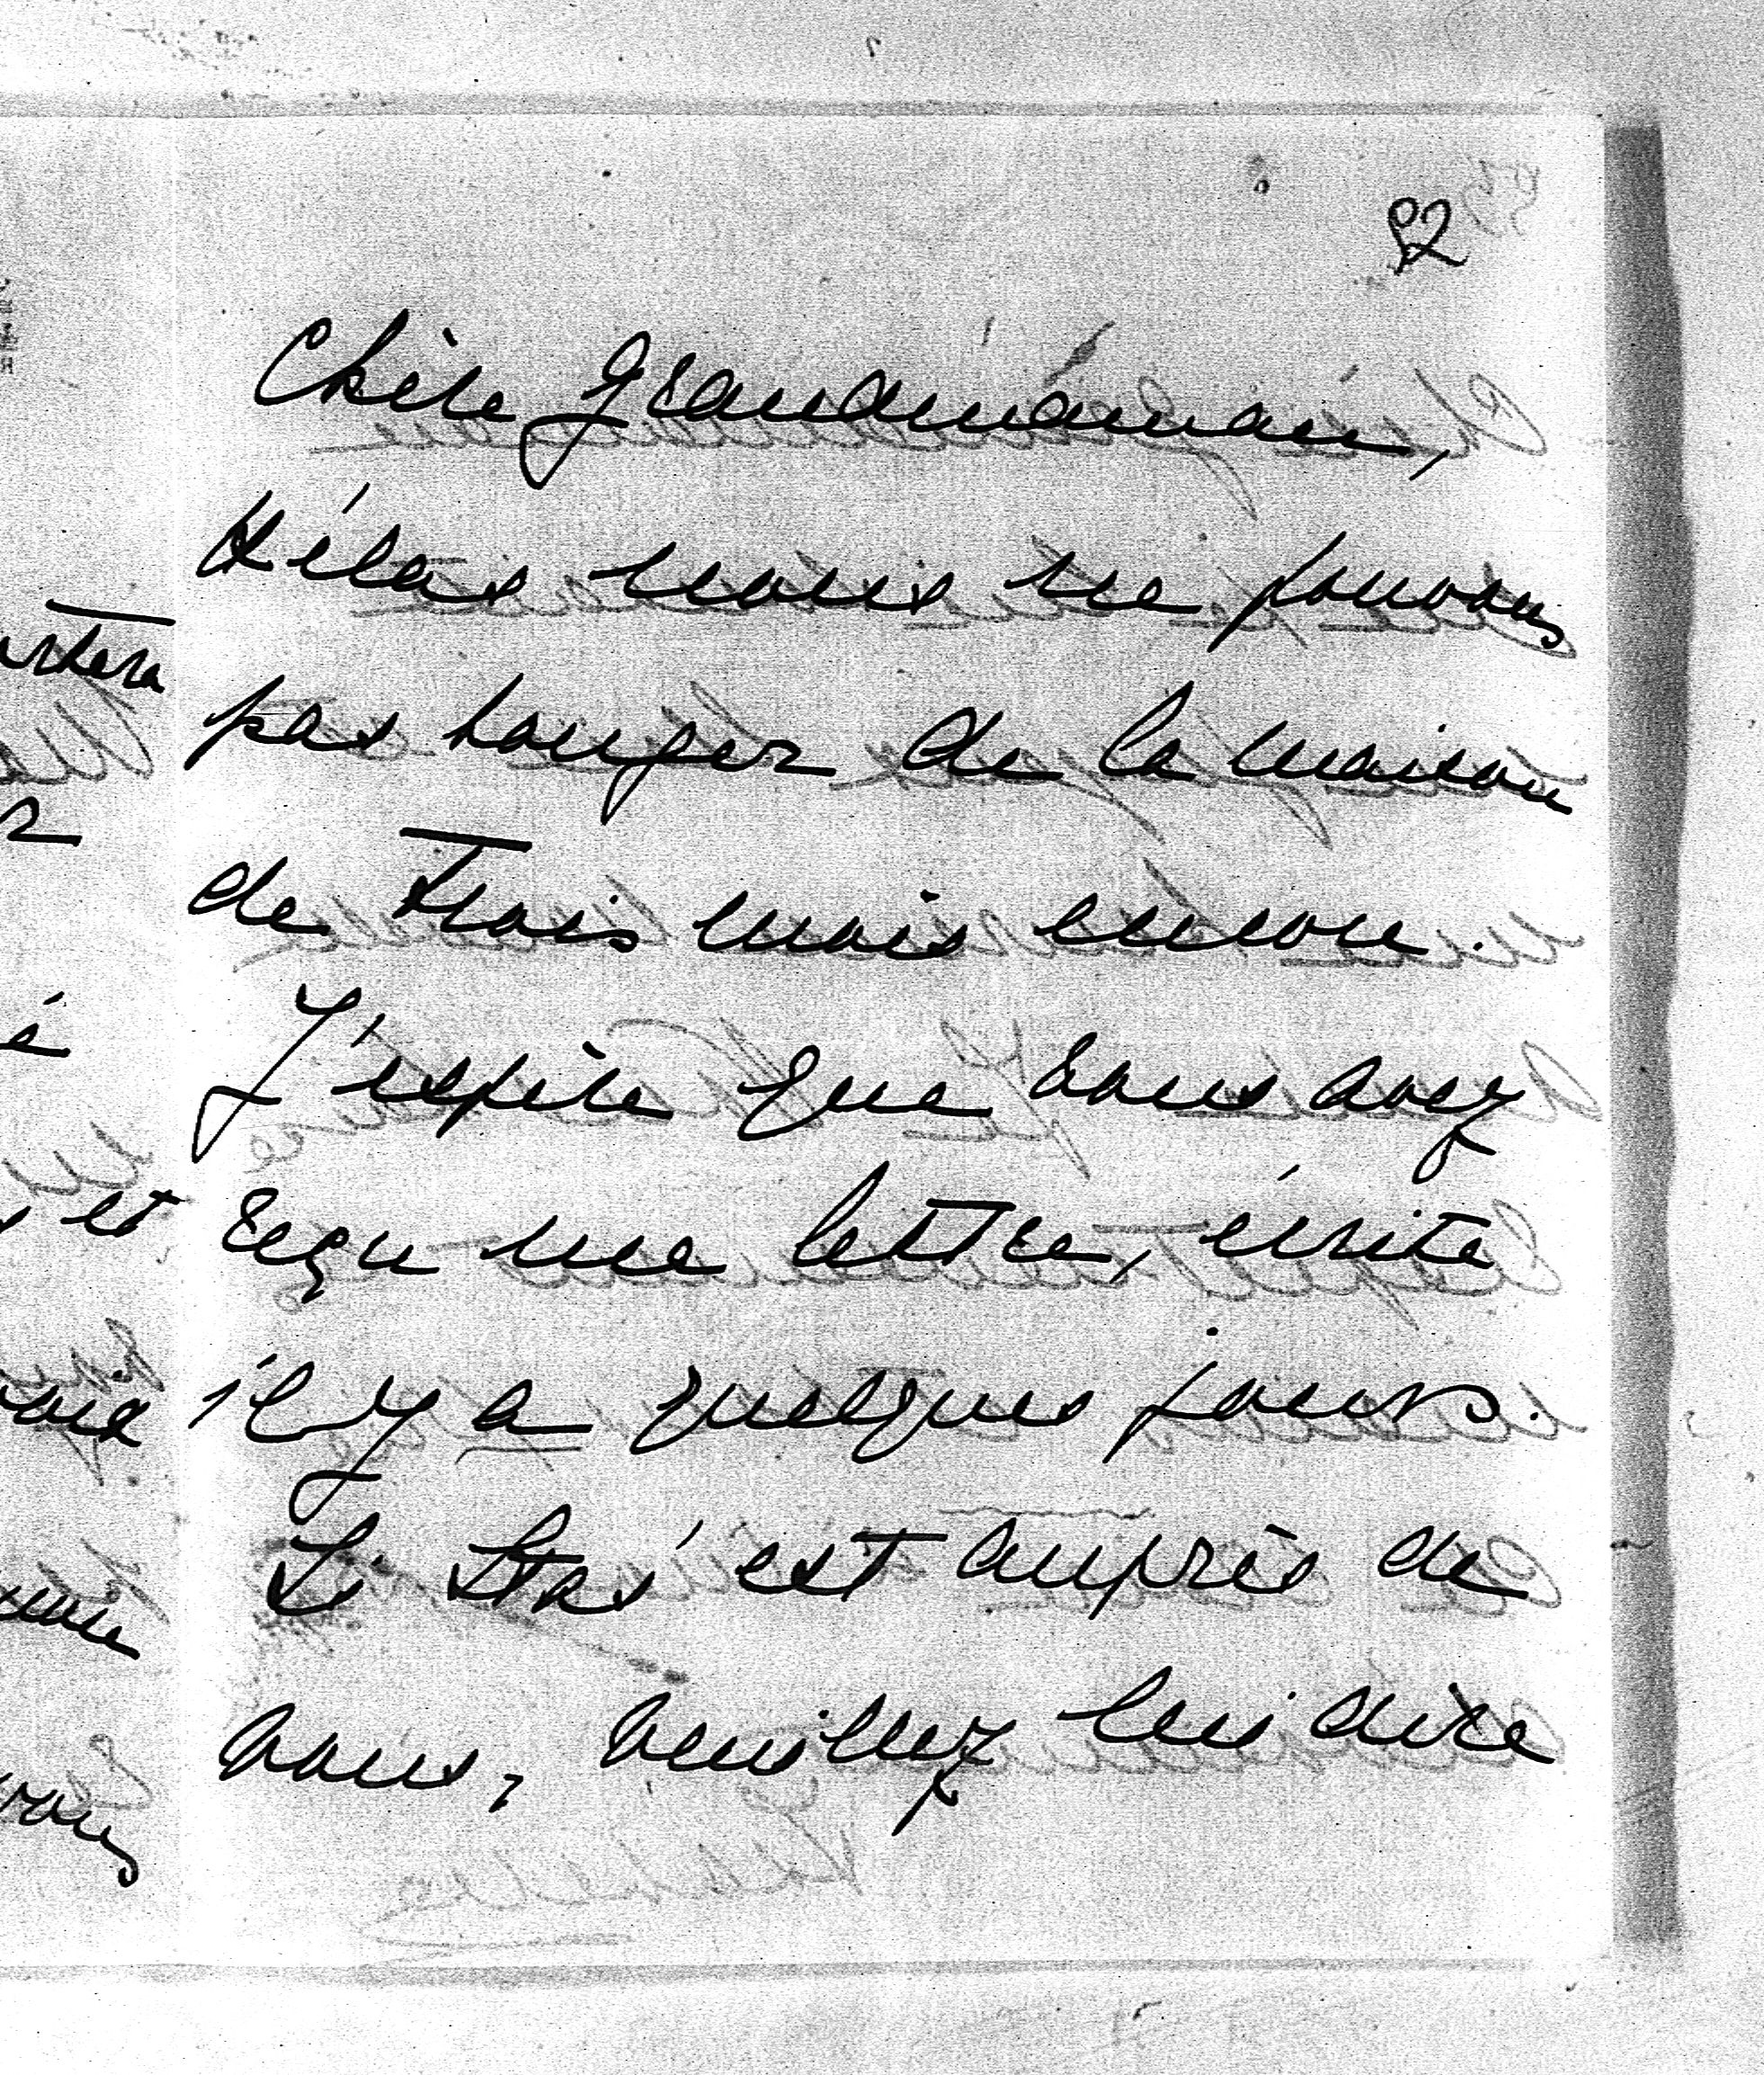 82
Chère grandmaman,
Hélas nous ne pouvons
pas bouger de la maison
de trois mois encore.
J'espère que vous avez
reçu une lettre, écrite
il y a quelques jours.
Si Stas' est auprès de
vous, veuillez lui dire
é
et